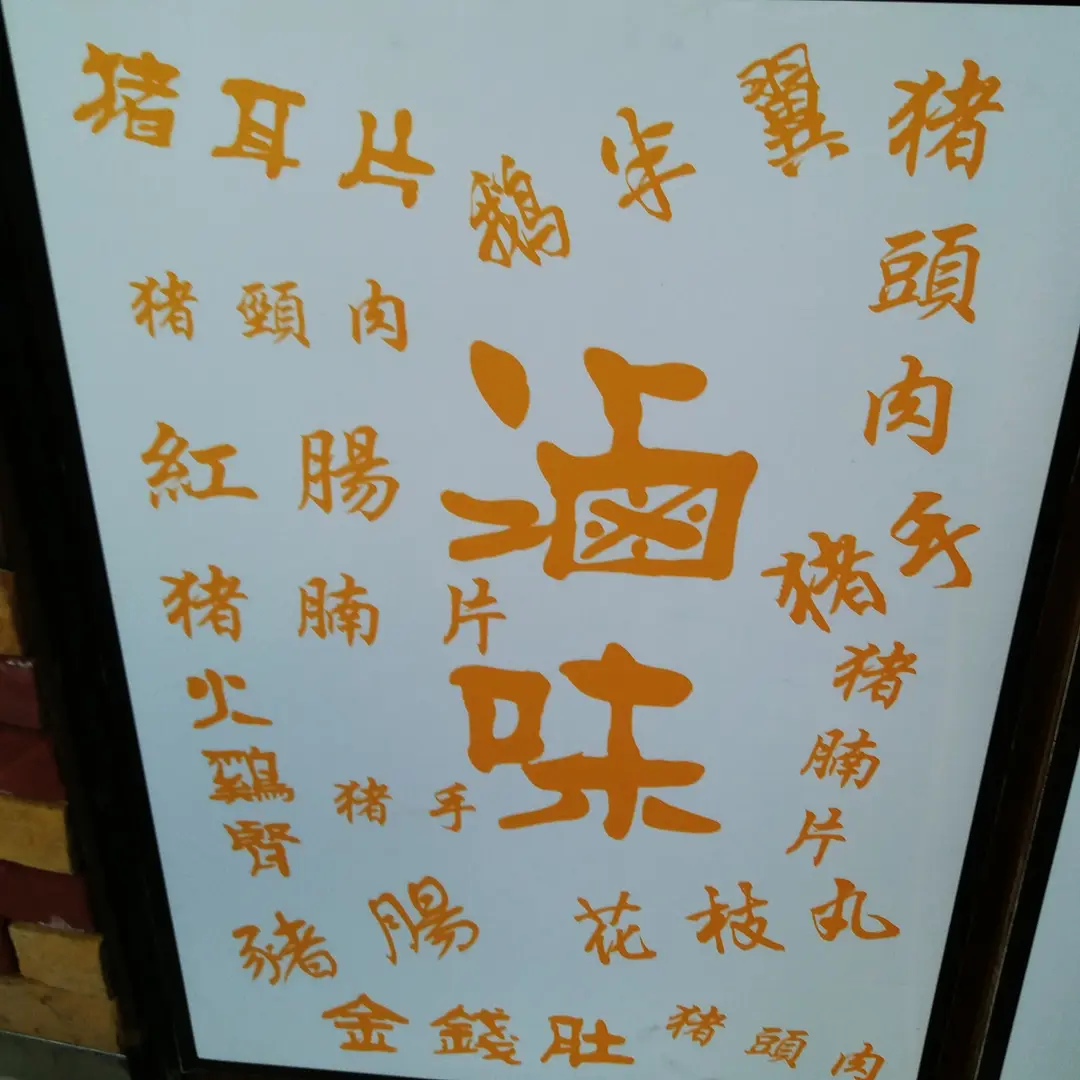 猪耳片
鵝掌翼
猪頭肉
猪頸肉
滷味
紅腸
猪手
猪腩片
猪腩片
火鷄腎
猪手
豬腸
花枝丸
金錢肚
猪頭肉